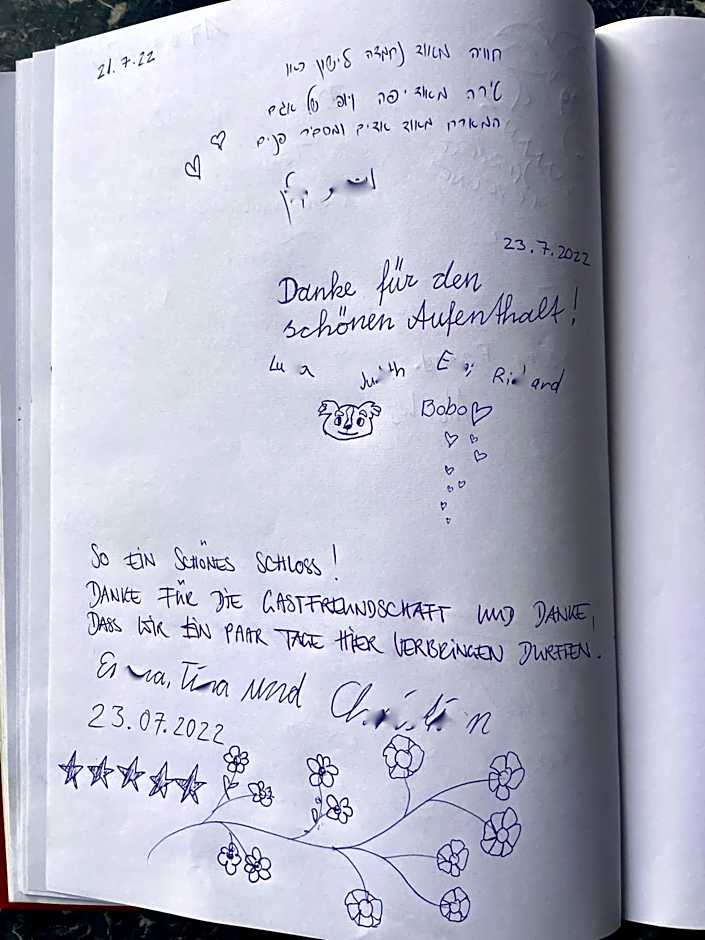 21.7.22
חוויה מאוד נחמדה לישון כאן
טירה מאוד יפה ונוף של אגם
המארח מאוד אדיב ומסביר פנים
23.7.2022
Danke für den
schönen Aufenthalt!
Bobo
SO EIN SCHÖNES SCHLOSS!
DANKE FÜR DIE GASTFREUNDSCHAFT UND DANKE,
DASS WIR EIN PAAR TAGE HIER VERBRINGEN DURFTEN.
und
23.07.2022